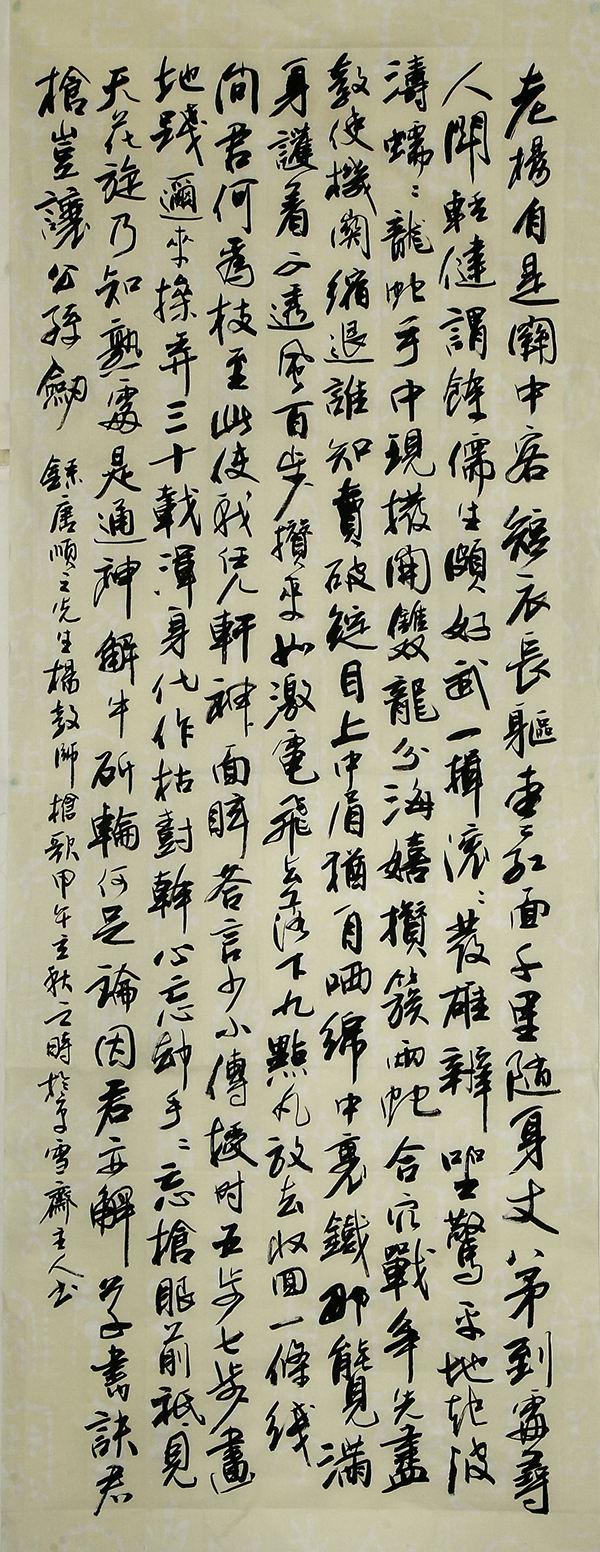 老楊自是關中客短衣長軀壺紅面千里隨身丈八矛到處尋
人鬪輕健謂餘儒生頗好武一揖滾〻發雄辨坐驚平地起波
濤蠕〻龍蛇手中現撥開雙龍分海嬉攢簇兩蛇合穴戰爭先盡
教使機關縮退誰知賣破綻目上中眉猶自哂綿中裹鐵那能覓滿
身護着不透風百步攢來如激電飛上落下九點丸放去收回一條綫
問君何爲技至此使我凭軒神面眩答言少小傳授時五步七步畫
地踐邇來操弄三十載渾身化作枯樹幹心忘却手〻忘槍眼前衹見
天花旋乃知熟處是通神解牛斫輪何足論因君亦解草書訣君
槍豈讓公孫劍 錄唐順之先生楊教師槍歌甲午立秋之時於享雪齋主人書